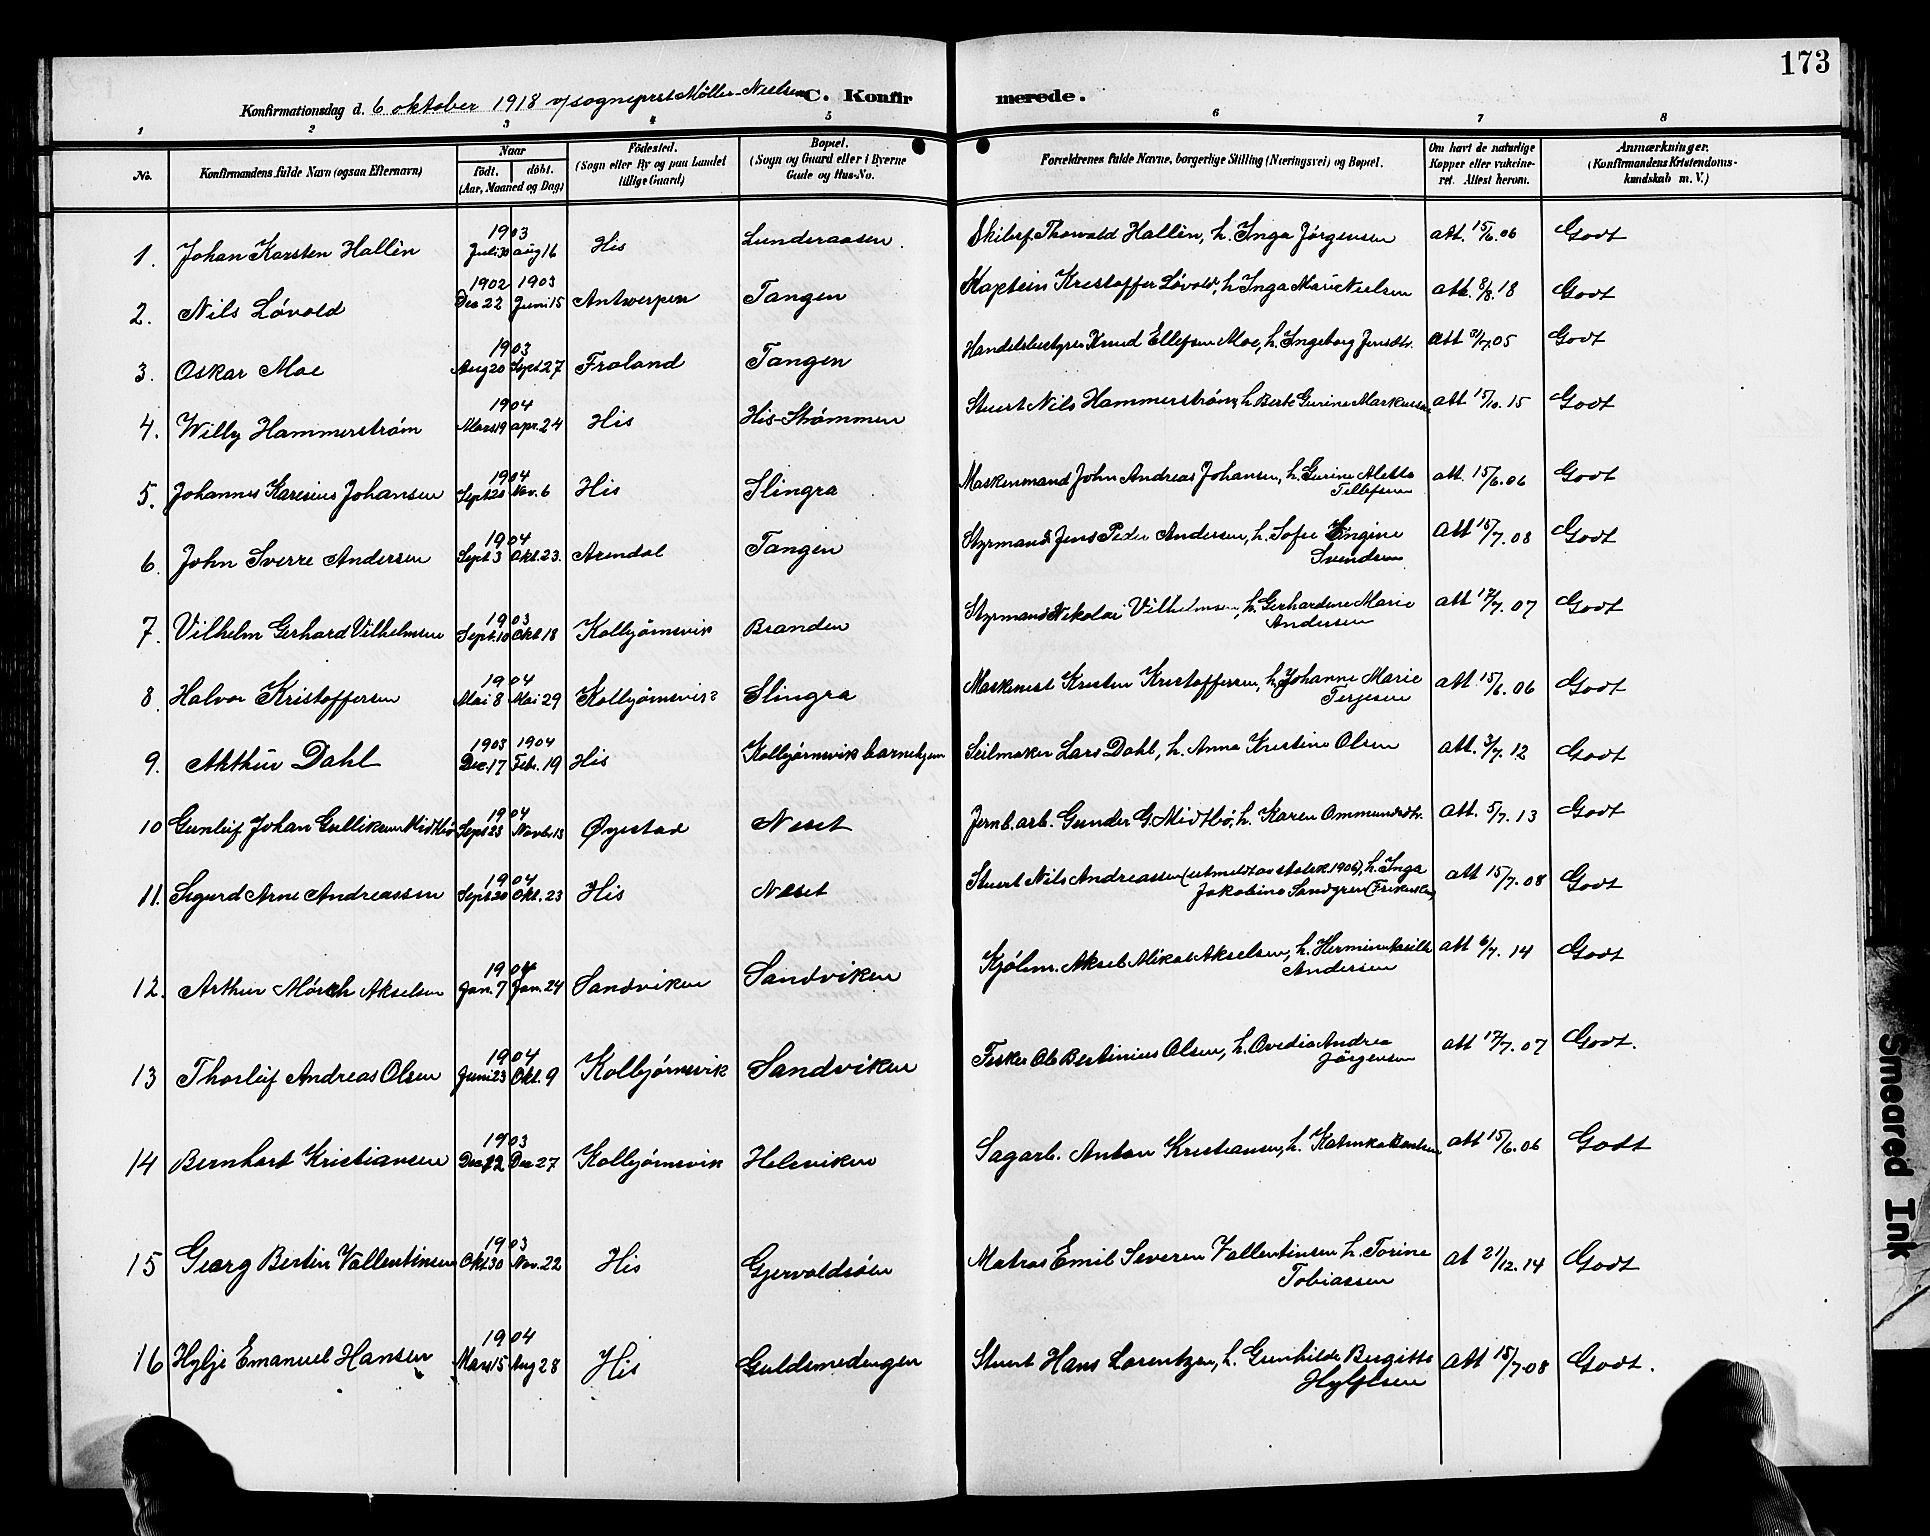 173
Konfirmationsdag d. 6 oktober 1918 v/sogneprst Møller-Nielsen C. Konfirmerede.
1 2 3 4 5 6 7 8
No. Konfirmandens fulde Navn (ogsaa Efternavn) Naar født. døbt. (Aar, Maaned og Dag) Fødested. (Sogn eller By og paa Landet tillige Gaard) Bopæl. (Sogn og Gaard eller i Byerne Gade og Hus-No. Forældrenes fulde Navne, borgerlige Stilling (Næringsvei) og Bopæl. Om havt de naturlige Kopper eller vakcineret. Attest herom. Anmærkninger. (Konfirmandens Kristendomskundskab m. V.)
1. Johan Karsten Hallén 1903 Juli 30 aug 16 His Lunderaasen. Skibsf. Thorvald Hallén, h. Inga Jørgensen att. 15/6.06 Godt
2. Nils Løvold 1902 Dec 22 1903 Juni 15 Antwerpen Tangen Kaptein Kristoffer Løvold, h. Inga Marie Nielsen att. 8/8.18 Godt
3. Oskar Moe 1903 Aug 20 Sept. 27 Froland Tangen Handelsbestyrer Knud Ellefsen Moe, h. Ingeborg Jensdtr. att /7.05 Godt
4. Willy Hammerstrøm 1904 Mars 19 apr. 24 His His-Strømmen Stuert Nils Hammerstrøm, h. Berte Gurine Markussen att 15/10.15 Godt
5. Johannes Karesius Johansen 1904 Sept 20 Nov. 6 His Slingra Maskenmand John Andreas Johansen, h. Gurine Aletta Tellefsen att. 15/6.06 Godt
6. John Sverre Andersen 1904 Sept 3 Okt. 23. Arendal Tangen Styrmand Jens Peder Andersen, h. Sofie Engine Svendsen att 15/7.08 Godt
7. Vilhelm Gerhard Vilhelmsen 1903 Sept. 10 Okt. 18 Kolbjørnsvik Branden Styrmand Nikolai Vilhelmsen, h. Gerhardine Marie Andersen att 17/7.07 Godt
8. Halvor Kristoffersen 1904 Mai 8 Mai 29 Kolbjørnsvik Slingra Maskinist Kristen Kristoffersen, h. Johanne Marie Terjesen att. 15/6.06 Godt
9. Arthur Dahl 1903 Dec. 17 1904 Febr. 19 His Kolbjørnsvik barnehjem Seilmaker Lars Dahl, h. Anna Kristine Olsen att. 3/7.12 Godt
10 Gunleif Johan Gulliksen Midtbø 1904 Sept 23 Novbr. 13 Øyestad Neset Jernb. arb. Gunder G. Midtbø, h. Karen Ommundsdtr. att. 5/7.13 Godt
11. Sigurd Arne Andreassen 1904 Sept. 20 Okt. 23 His Neset Stuert Nils Andreassen (utmeldt av statsk. 1906), h. Inga Jakobine Sandgren (Frikirken) att 15/7.08 Godt
12. Arthur Mörch Akselsen 1904 Jan. 7 Jan. 24 Sandviken Sandviken Kjølm. Aksel Mikal Akselsen, h. Hermine Andersen att 6/7.14 Godt
13 Thorleif Andreas Olsen 1904 Juni 23 Okt. 9 Kolbjørnsvik Sandviken Fisker Ole Bertinius Olsen, h. Ovedia Andrea Jørgensen att 17/7.07 Godt.
14 Bernhart Kristiansen 1903 Dec. 12 Dec 27 Kolbjørnsvik Helsviken Sagarb. Anton Kristiansen, h. Katinka att 15/6.06 Godt
15 Georg Bertin Vallentinsen 1903 Okt. 30 Nov. 22 His Gjervoldsøen Matros Emil Severin Vallentinsen h. Torine Tobiassen at 21/12.14 Godt
16 Hylje Emanuel Hansen 1904 Mars 15 Aug 28 His Guldsmedengen Stuert Hans Lorentzen, h. Gunhilde Birgitte Hyljesen att 15/7.08 Godt.
Smeared Ink